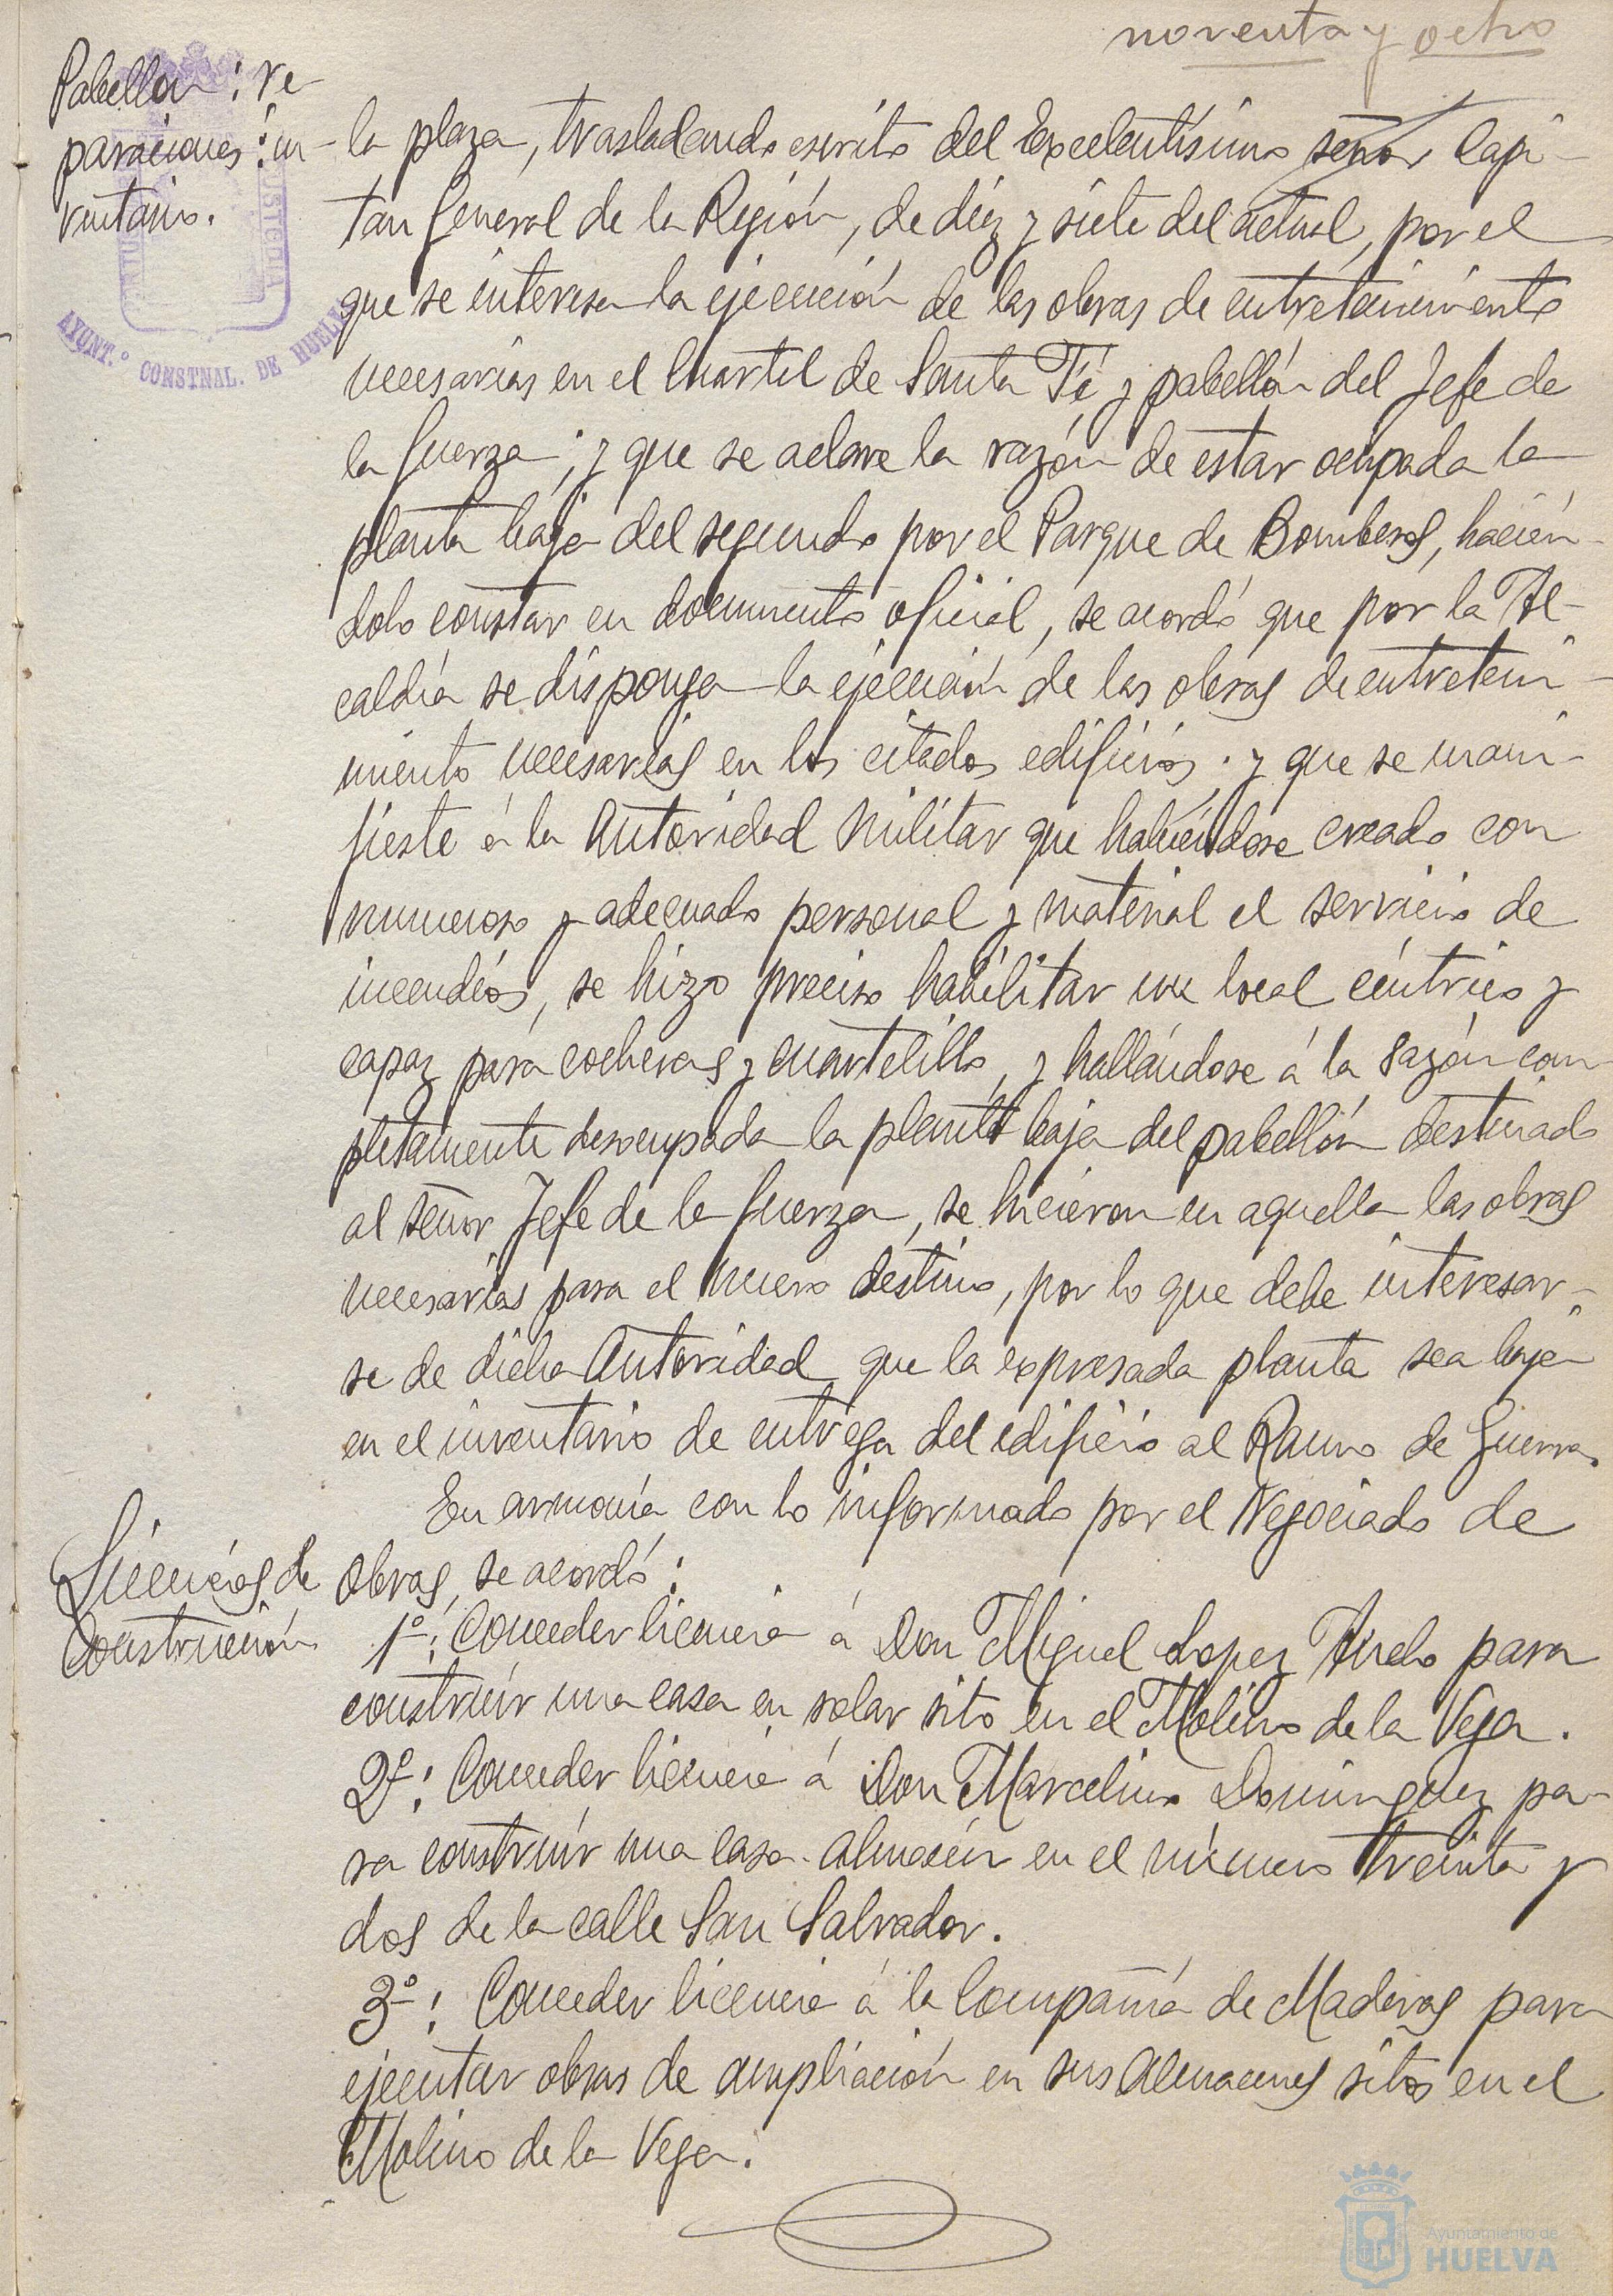 noventa y ocho
Pabellon: re-
paraciones: in-
ventario.
la plaza, trasladando escrito del Excelentísimo señor Capi-
tan General de la Región, de diéz y siete del actual, por el
que se interesa la ejecución de las obras de entretenimiento
necesarias en el Cuartel de Santa Fé y pabellón del Jefe de
la fuerza; y que se aclare la razón de estar ocupada la
planta baja del segundo por el Parque de Bomberos, hacién-
dolo constar en documento oficial, se acordó que por la Al-
caldía se disponga la ejecución de las obras de entreteni-
miento necesarias en los citados edificios; y que se mani-
fieste á la Autoridad Militar que habiéndose creado con
numeroso y adecuado personal y material el servicio de
incendios, se hizo preciso habilitar un local céntrico y
capaz para cocheras y cuartelillo, y hallándose á la sazón com
pletamente desocupada la planta baja del pabellón destinado
al señor Jefe de la fuerza, se hicieron en aquella las obras
necesarias para el nuevo destino, por lo que debe interesar-
se de dicha Autoridad que la expresada planta sea baja
en el inventario de entrega del edificio al Ramo de Guerra.
En armonía con lo informado por el Negociado de
Licencias de
Construcción
Obras, se acordó:
1º: Conceder licencia á Don Miguel Lopez para
construir una casa en solar sito en el Molino de la Vega.
2º: Conceder licencia á Don Marcelino Dominguez pa-
ra construir una casa-almacén en el número treinta y
dos de la calle San Salvador.
3º: Conceder licencia á la Compañía de Maderas para
ejecutar obras de ampliación en sus Almacenes sitos en el
Molino de la Vega.
AYUNT.º CONSTNAL. DE HUELVA
Ayuntamiento de
HUELVA